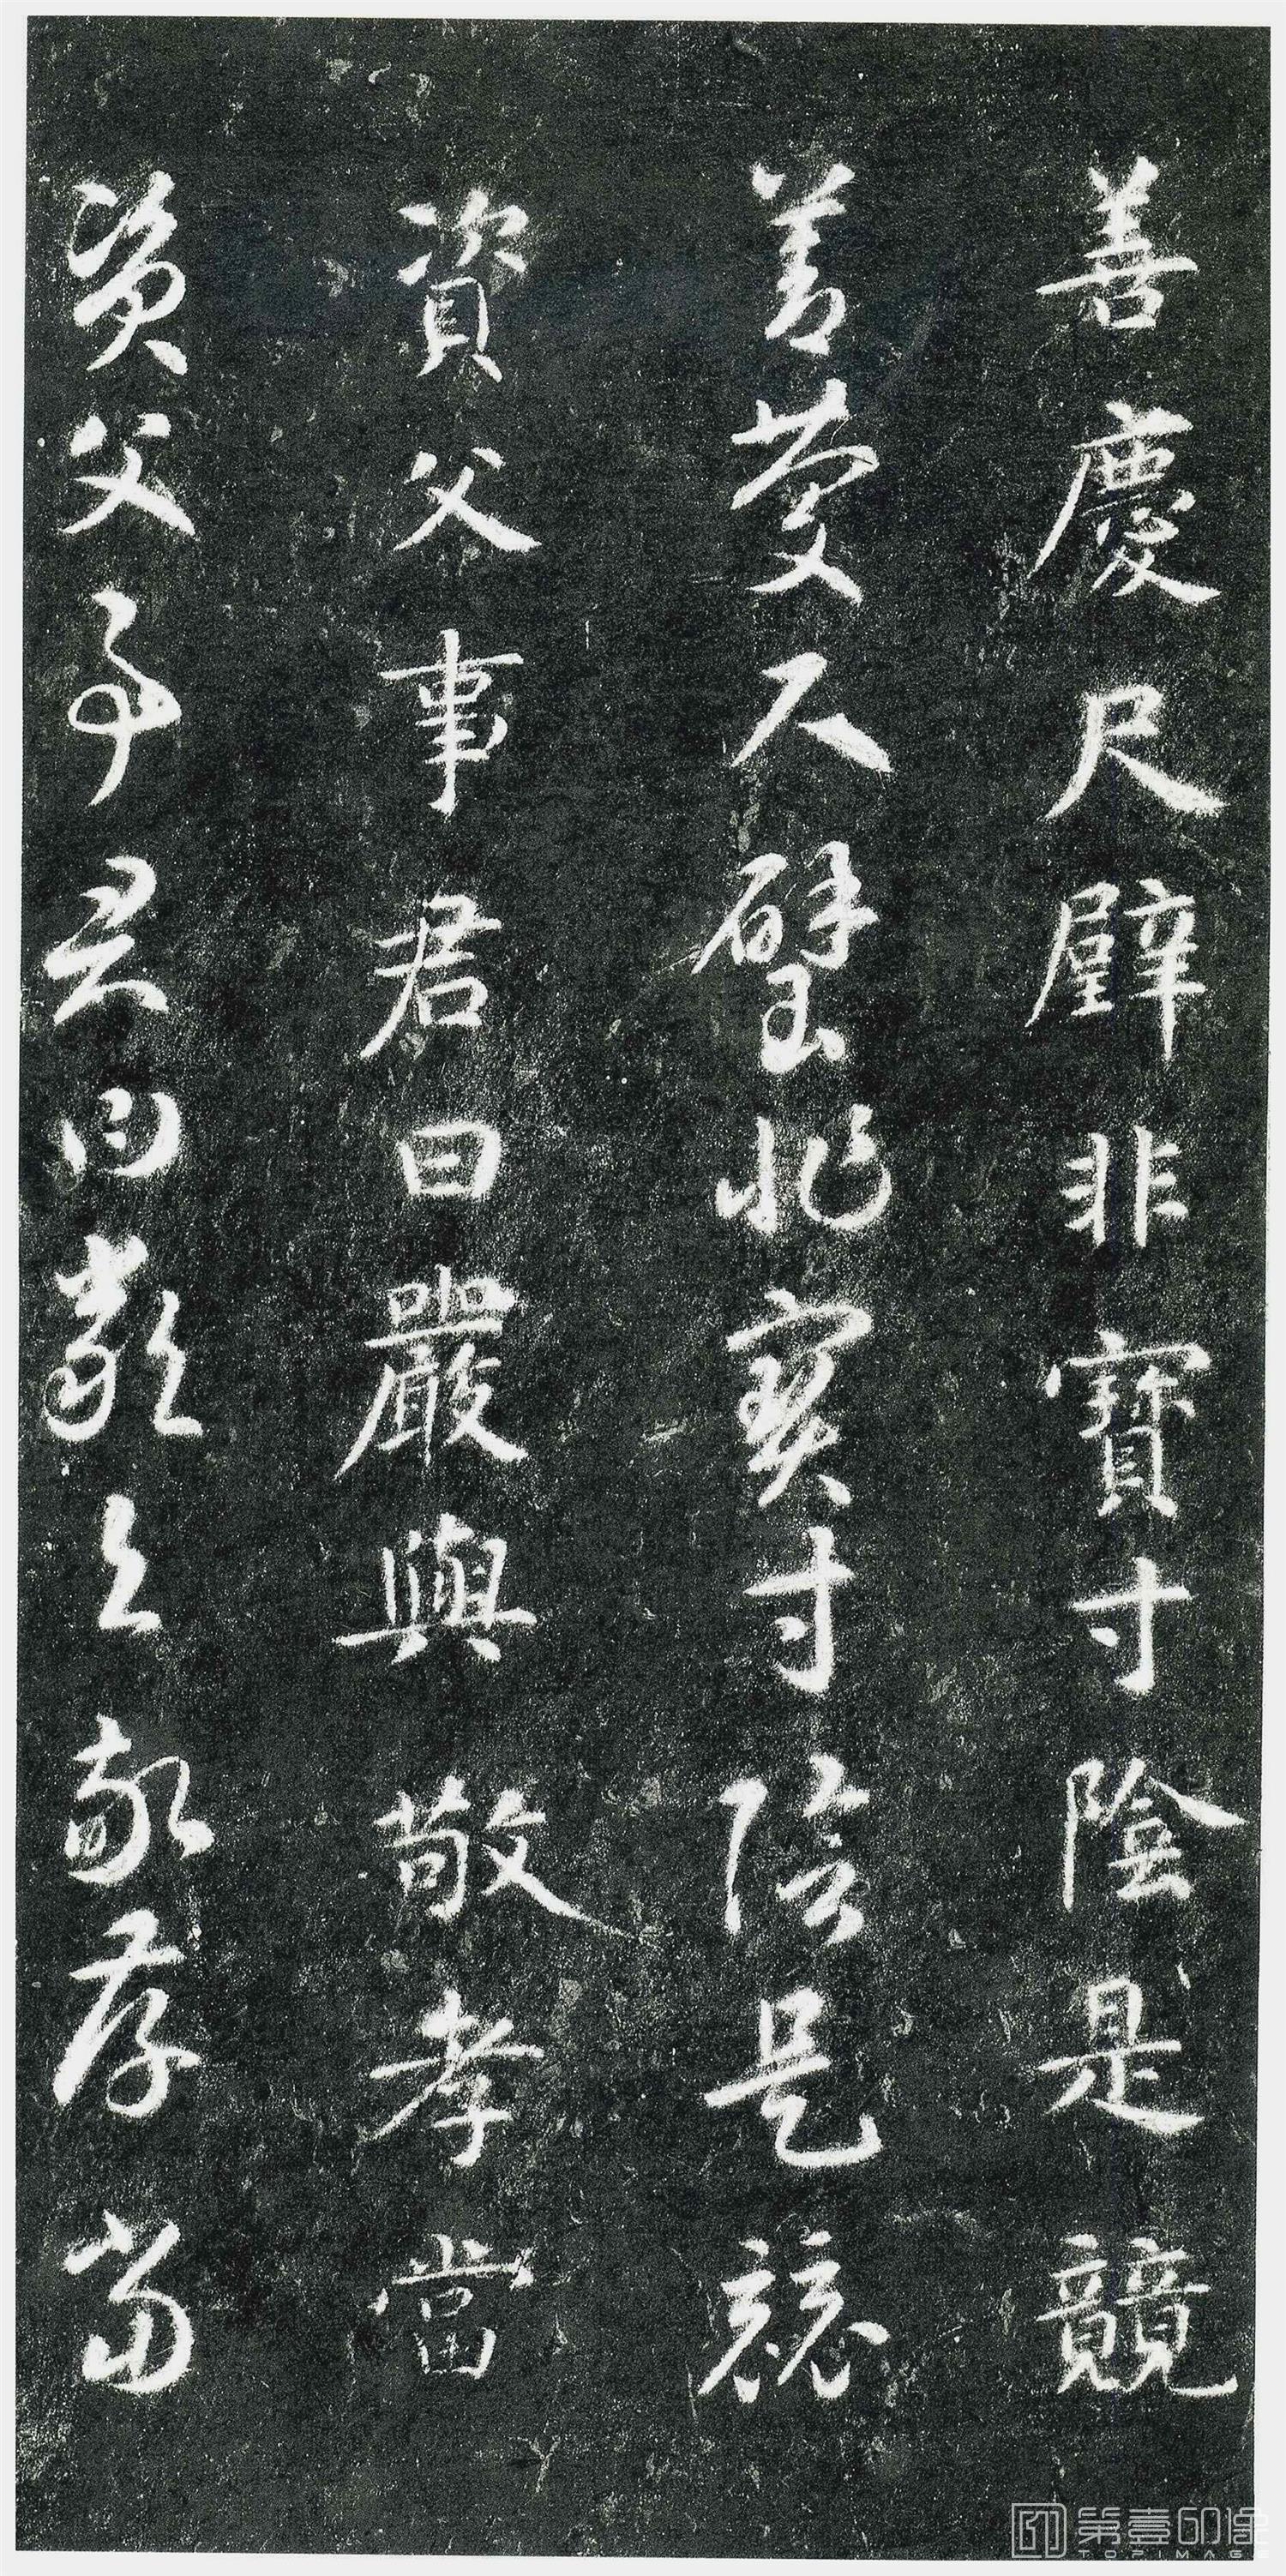 善慶尺璧非寶寸陰是競
善慶尺璧非寶寸陰是競
資父事君曰嚴與敬孝當
資父事君曰嚴與敬孝當
第壹印像
TOPIMAGE